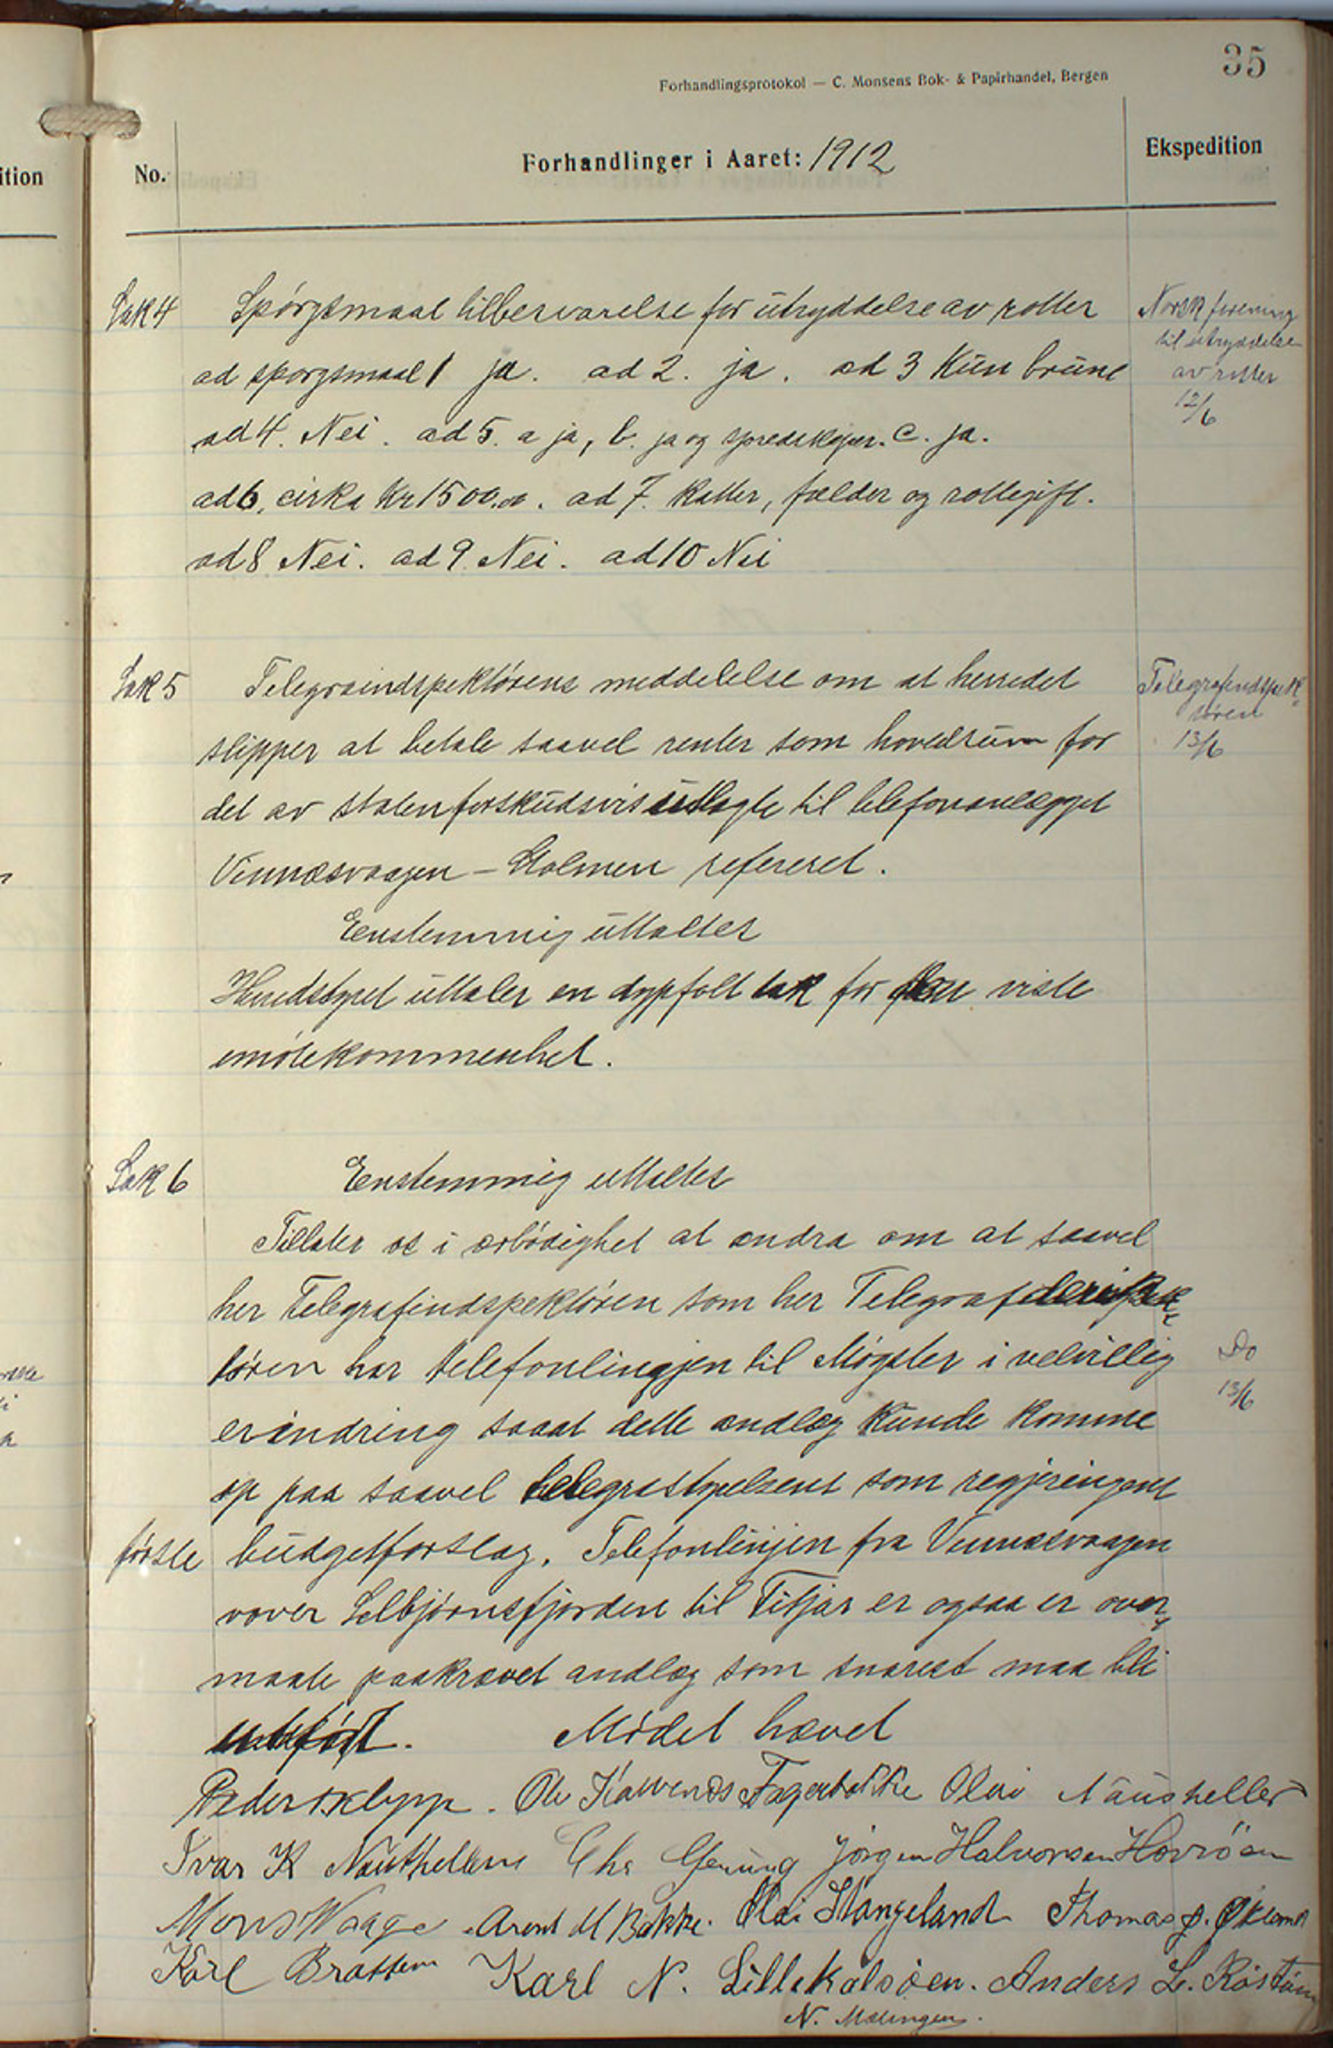 35
Forhandlingsprotokol — C. Monsens Bok- & Papirhandel, Bergen
No. Forhandlinger i Aaret: 1912 Ekspedition
Sak 4 Spörgsmaal til bersvarelse for utryddelse av rotter
ad sporgsmaal 1 ja. ad 2. ja. ad 3 Kun brune
ad 4. Nei. ad 5. a ja, b. ja og spredskaper. C. ja.
ad 6. cirka Kr 1500.00. ad 7. Katter, fælder og rottegift.
ad 8 Nei. ad 9. Nei. ad 10 Nei
Norsk forening
til utryddelse
av rotter
12/6
Sak 5 Telegraindspektörens meddelelse om at herredet
slipper at betale saavel renter som hovedsum for
det av staten forskudsvis utlagte til telefonanlægget
Vinnæsvaagen – Stolmen refereret.
Enstemmig uttaltes
Herredstyret uttaler en dypfølt tak for den viste
imötekommenhet.
Telegrafindspek
tören
13/6
Sak 6 Enstemmig uttaltes
Tillater os i ærbödighet at andra om at saavel
her Telegrafindspektören som her Telegrafdirek
tören har telefonlingjen til Møgster i velvillig
erindring saaat dette andlæg kunde komme
op paa saavel telegrastyrelsens som regjeringens
første budgetforslag. Telefonlinjen fra Vinnæsvaagen
vover Selbjörnsfjorden til Fitjar er ogsaa er over
maate paakrævet andlæg som snarest maa bli
utført. Mödet hævet
Do
13/6
Peder Klepp. Ole Fagerbakke Olai Nausheller
Ivar K Naustheller Chr Gjerung Jörgen Halvorsen Hovröen
Mons Waage. Arent M Bakke. Olai Stangeland Thomas J. Økland
Karl Brattem Karl N. Lillekalsöen. Anders L. Röstöen
N. Mælingen.